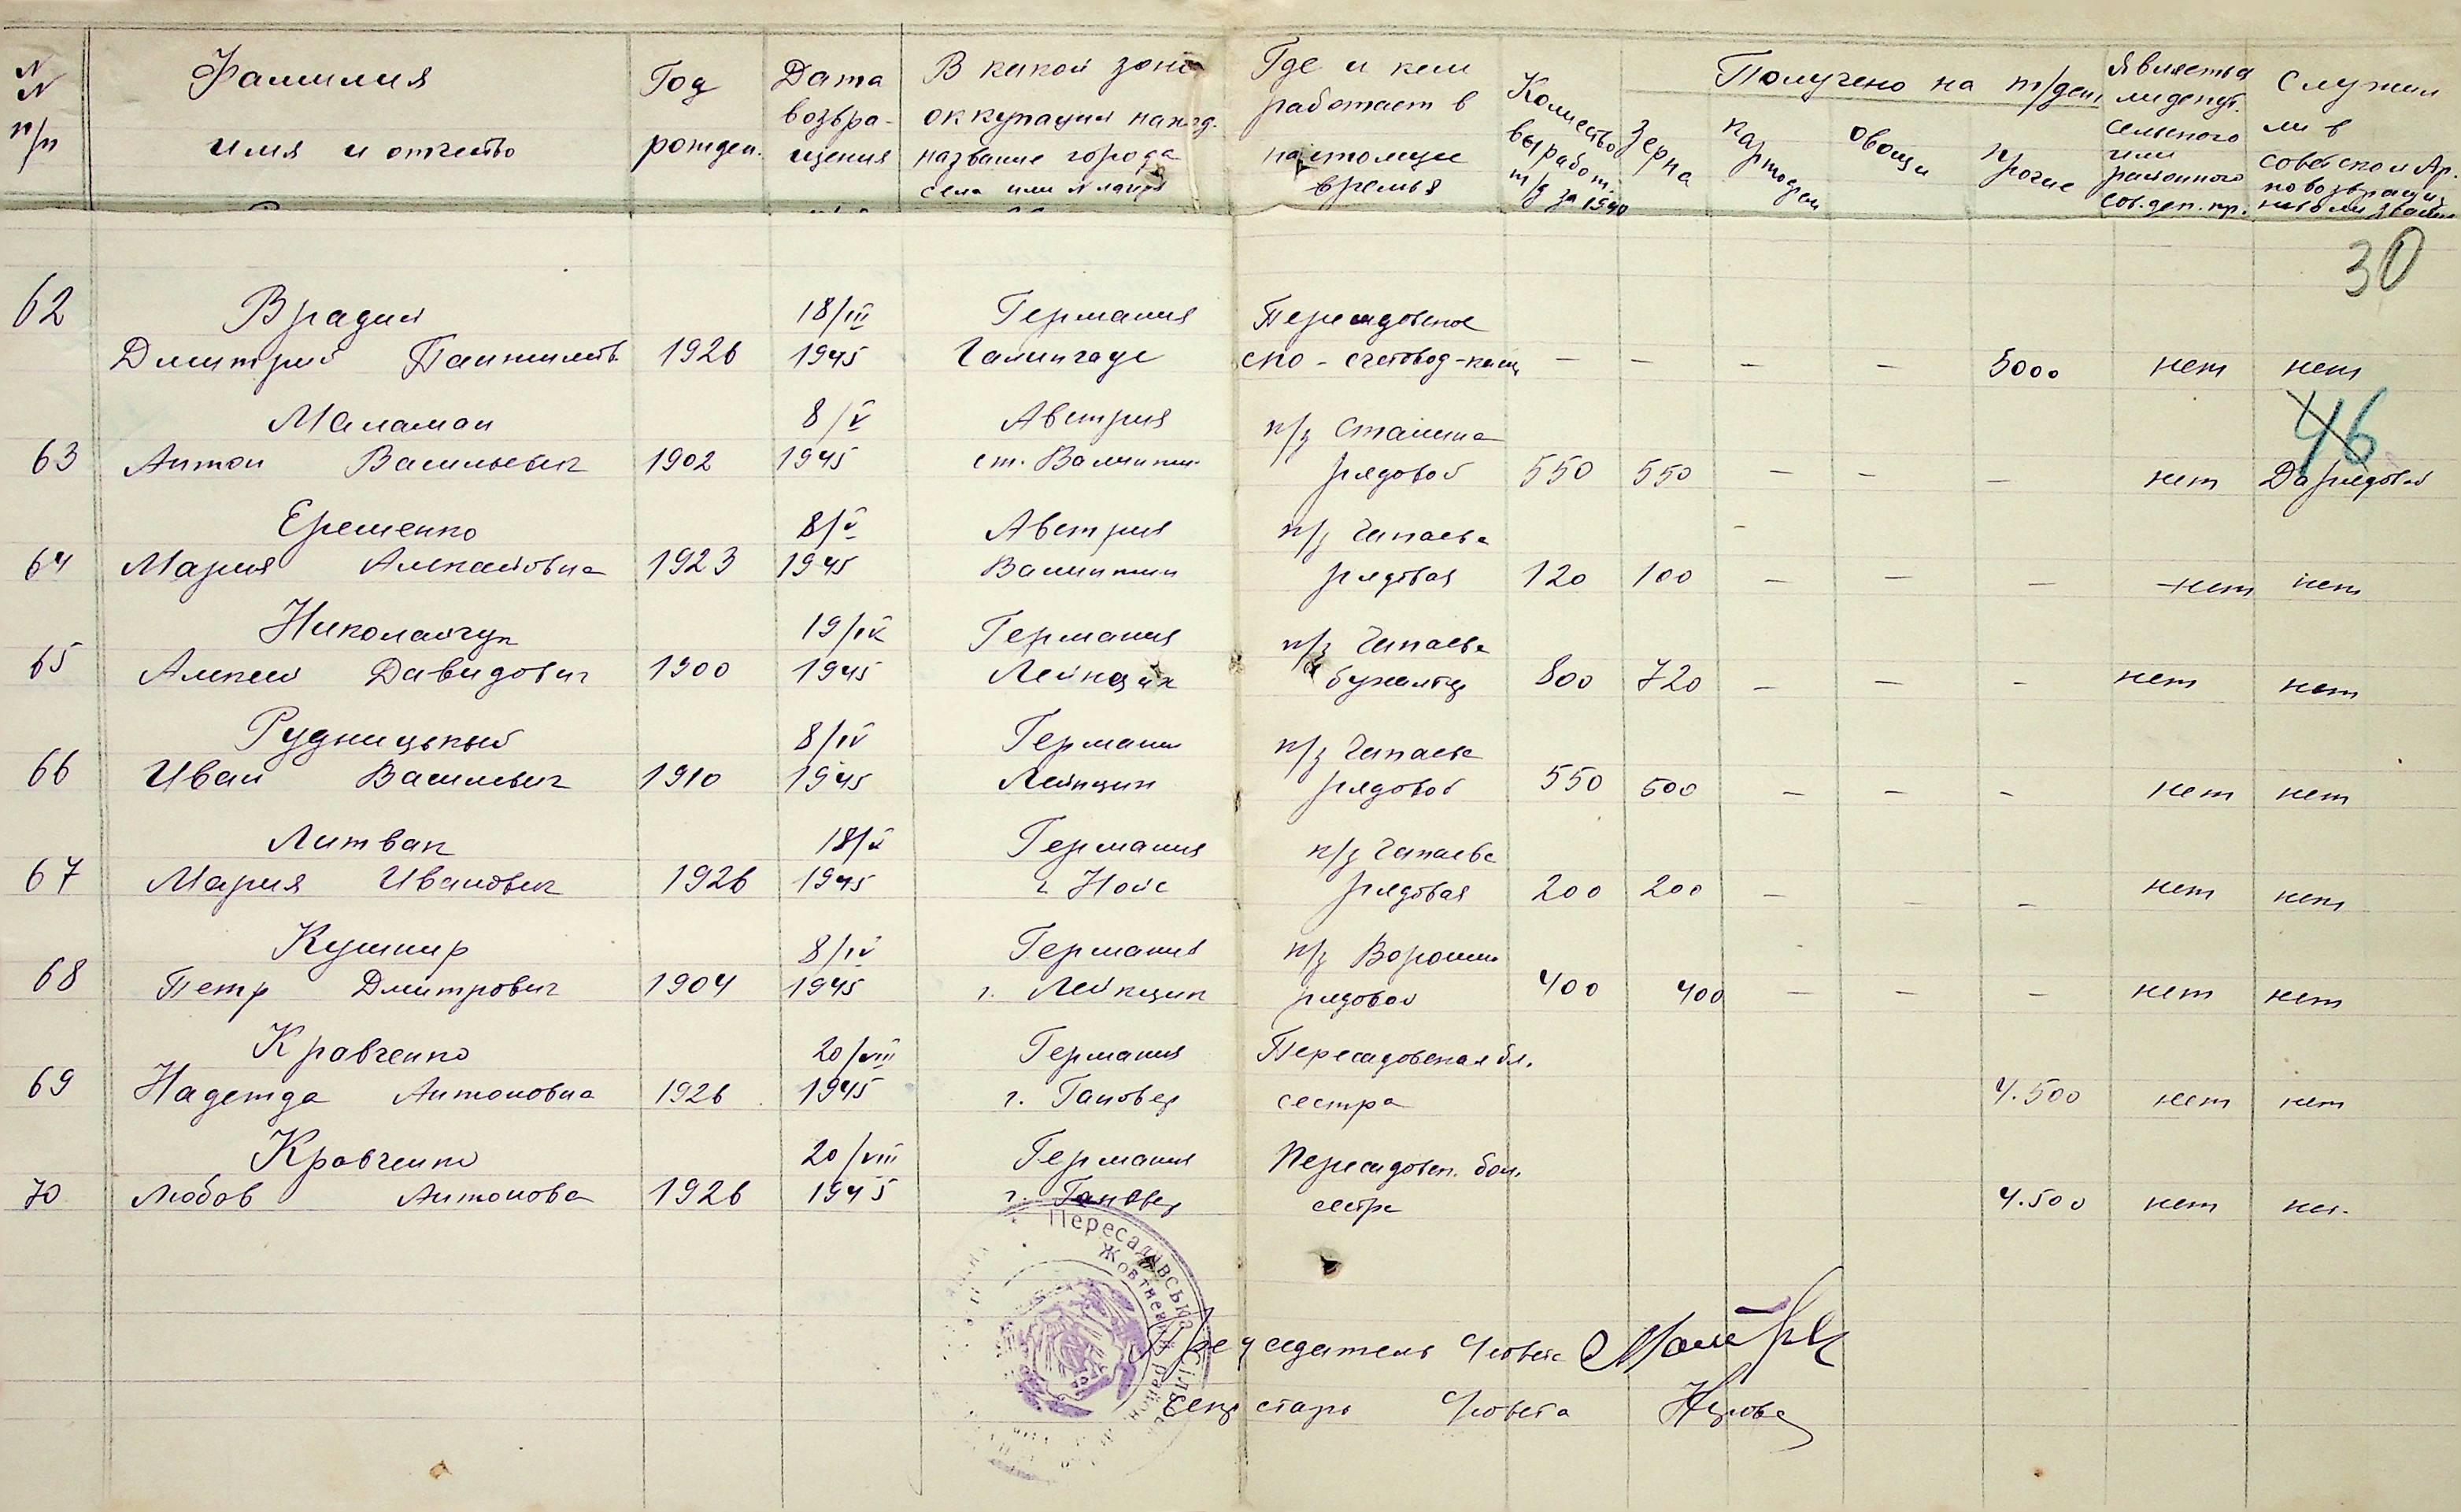 N N п/п
Фамилия имя и отчество
Год рожден.
Дата возвра-щения
В какой зоне оккупации наход. название города села или N лагеря
Где и кем работает в настоящее время
Количество выработ. т/д за 1940
Получено на т/день
зерна картофеля овощи прочие
является ли депут. сельского или районного сов. деп. тр.
Служил ли в советской Ар. по возвращ.
30
Врадий 18/III Германия Пересадовское
62 Дмитрий 1926 1945 СПО - счетовод-касс — — — — 5000 нет нет
Маламан 8/V Австрия к/з Сталина
46
63 Антон Васильевич 1902 1945 ст. рядовой 550 550 — — — нет Да рядовой
Еременко 8/V Австрия к/з Чапаева
64 Мария Алексеевна 1923 1945 рядовая 120 100 — — — нет нет
Николайчук 19/IX Германия к/з Чапаева
65 Алексей Давидович 1900 1945 Лейпциг бухалтер 800 720 — — — нет нет
Рудницький 8/IV Германия к/з Чапаева
66 Иван Васильевич 1910 1945 Лейпциг рядовой 550 500 — — — нет нет
Литвак 18/X Германия к/з Чапаева
67 Мария Иванович 1926 1945 г. Нойс рядовая 200 200 — — — нет нет
Кушнир 8/IV Германия к/з Вороши
68 Петр Дмитрович 1904 1945 г. Лейпциг рядовой 400 400 — — — нет нет
Кравченко 20/VIII Германия Пересадовская бл.
69 Надежда Антоновна 1926 1945 г. Гановер сестра 4.500 нет нет
Кравченко 20/VIII Германия Пересадовск. бол.
70 Любов Антонова 1926 1945 г. Гановер сестра 4.500 нет нет.
Пересадівська сільська
Жовтневий район
Председатель с/совета
Секретарь с/совета